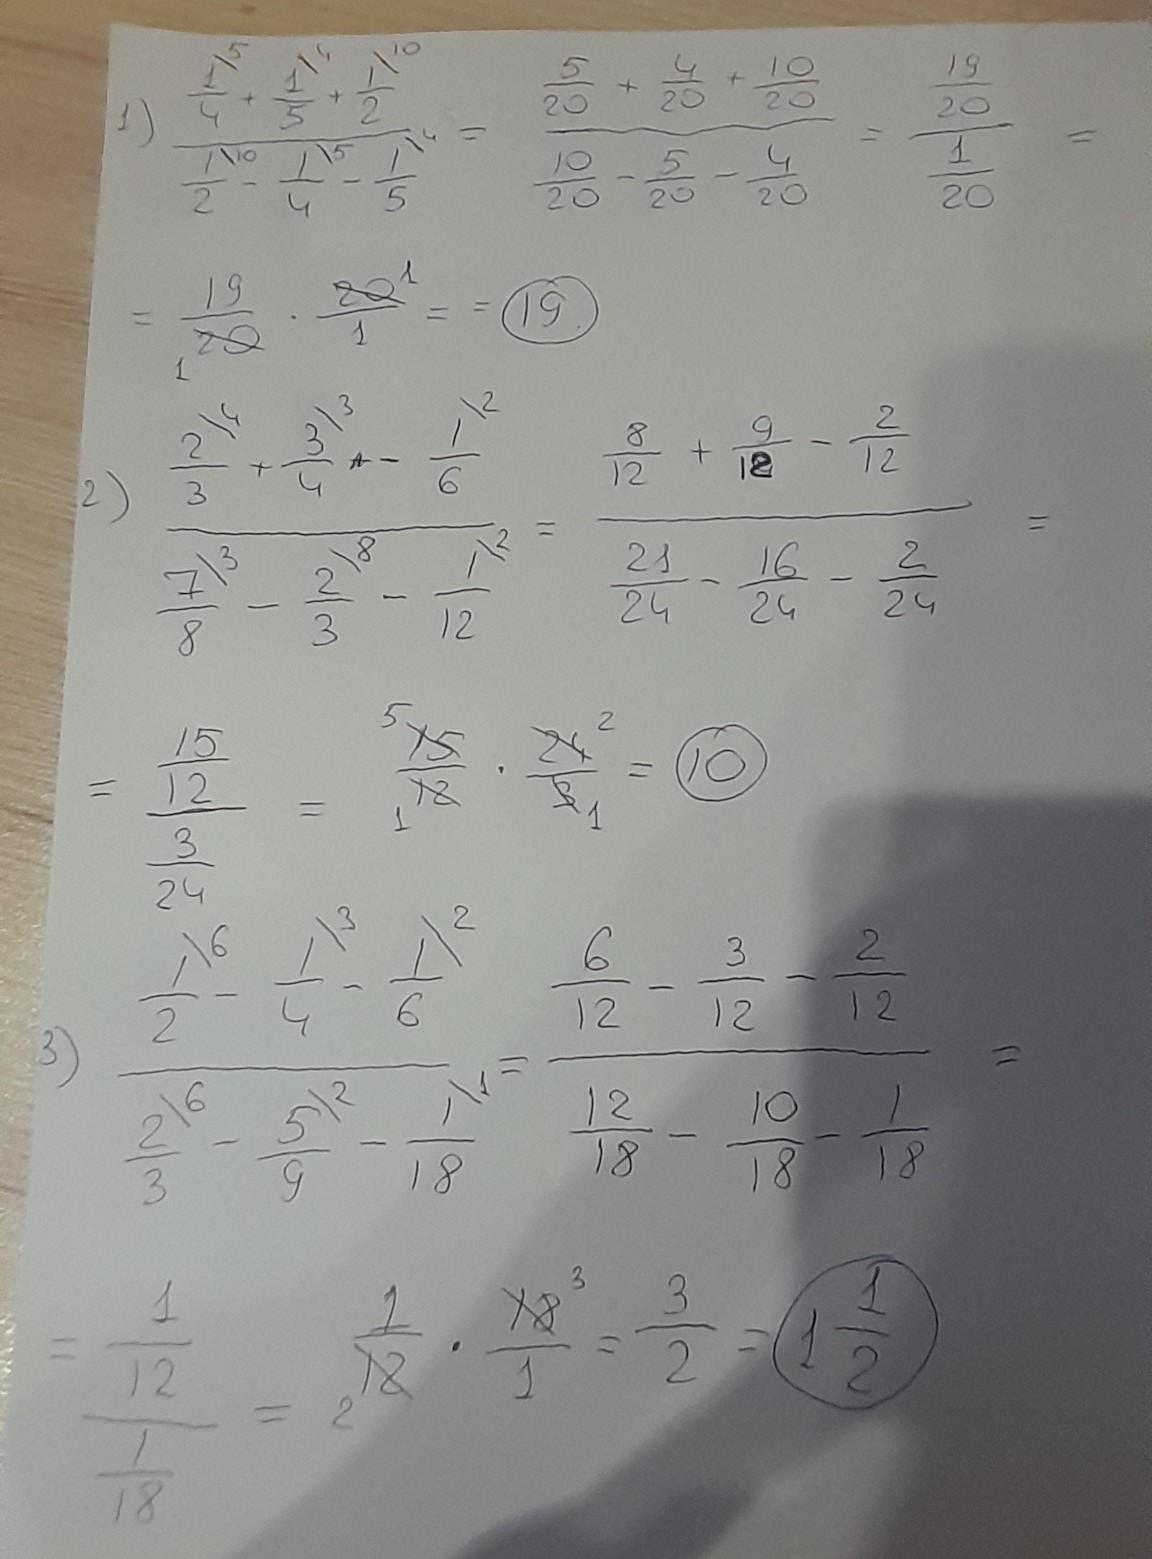 1) (1/4\5 + 1/5\4 + 1/2\10) / (1/2\10 - 1/4\5 - 1/5\4) = (5/20 + 4/20 + 10/20) / (10/20 - 5/20 - 4/20) = (19/20) / (1/20) =
= 19/20 1 · 20/1 1 = = 19
2) (2/3\4 + 3/4\3 - 1/6\2) / (7/8\3 - 2/3\8 - 1/12\2) = (8/12 + 9/12 - 2/12) / (21/24 - 16/24 - 2/24) =
= (15/12) / (3/24) = 5 15/12 1 · 24/3 2 1 = 10
3) (1/2\6 - 1/4\3 - 1/6\2) / (2/3\6 - 5/9\2 - 1/18\1) = (6/12 - 3/12 - 2/12) / (12/18 - 10/18 - 1/18) =
= (1/12) / (1/18) = 1/12 2 · 18/1 3 = 3/2 = 1 1/2